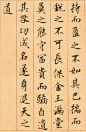 持而盈之不如其已揣而
銳之不可長保金玉滿堂
莫之能守富貴而驕自遺
其咎功成名遂身退天之
道